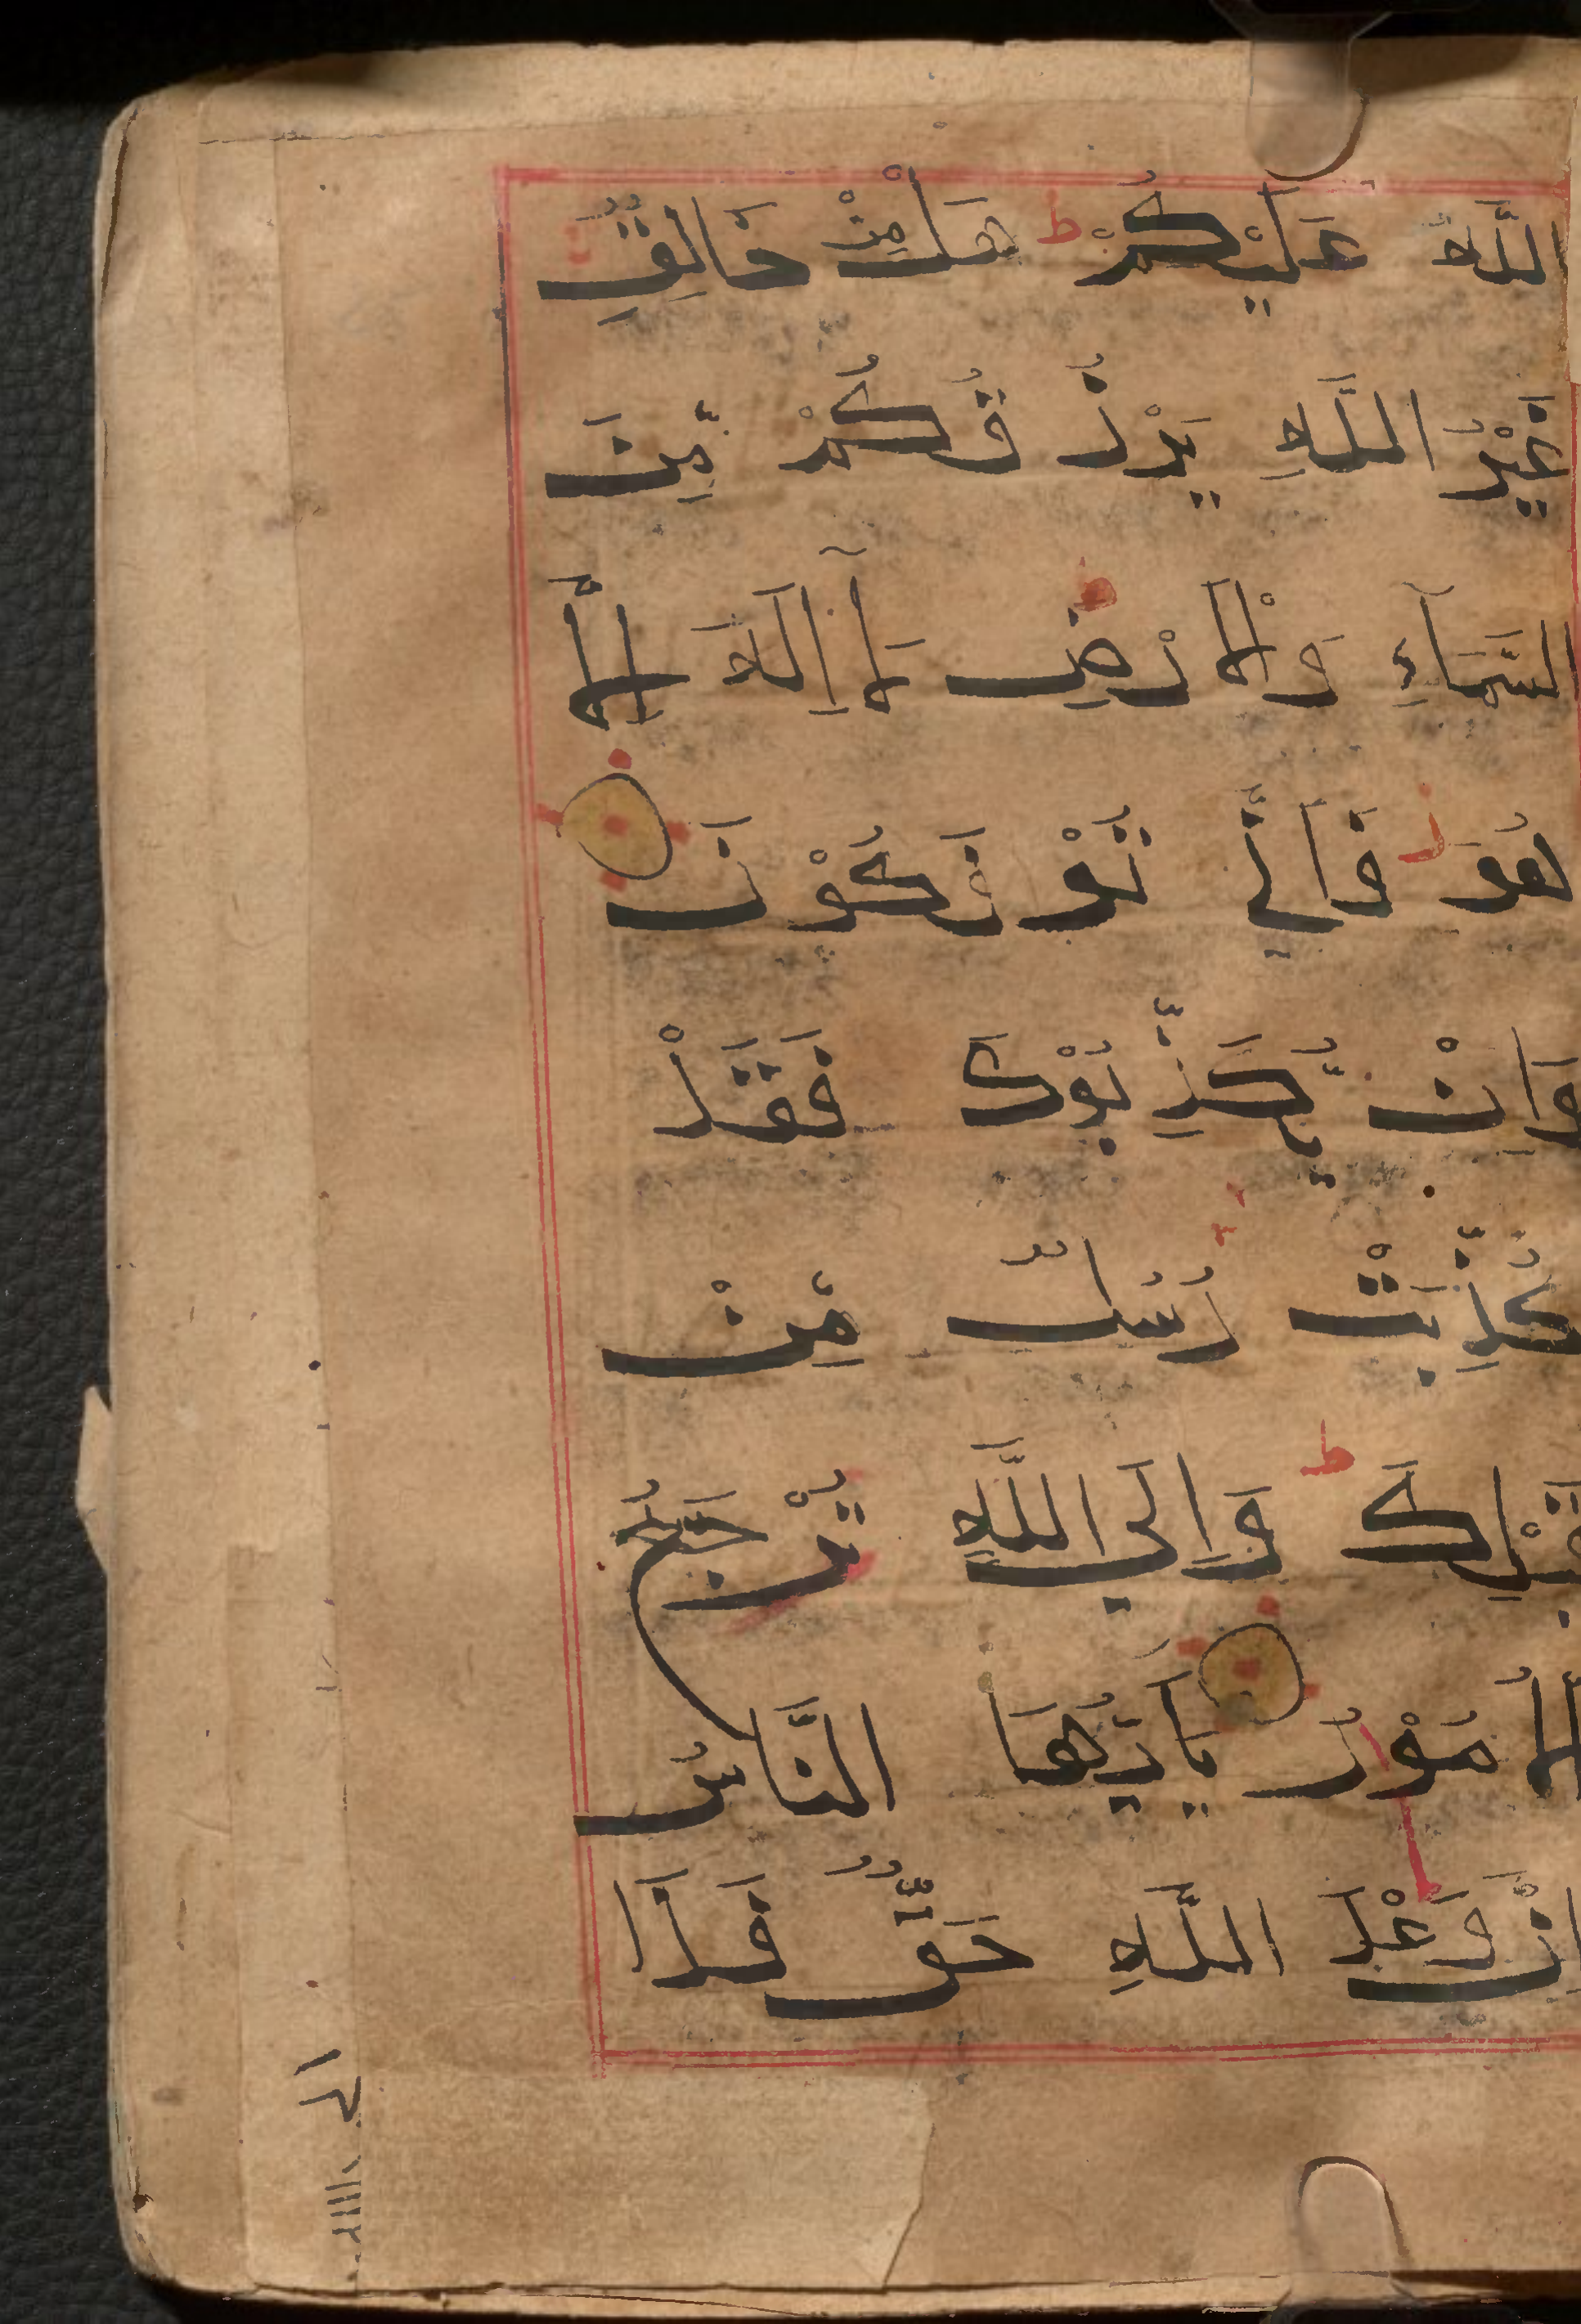 اللَّهِ عَلَيْكُمْ ط هَلْ مِنْ خَالِقٍ
غَيْرُ اللَّهِ يَرْزُ قُكُمْ مِّنَ
السَّمَآءِ وَالْاَرْضِ مَآ اِلٰهَ اِلَّا
هُوَ ز فَاَنّٰي تُؤْفَكُوْنَ
وَاِنْ يُّكَذِّبُوْكَ فَقَدْ
كُذِّبَتْ رُسُلٌ مِّنْ
قَبْلِكَ ط وَاِلَي اللَّهِ تُرْجَعُ
الْاُمُوْرُ يٰاَيُّهَا النَّاسُ
اِنَّ وَعْدَ اللَّهِ حَقٌّ فَلَا